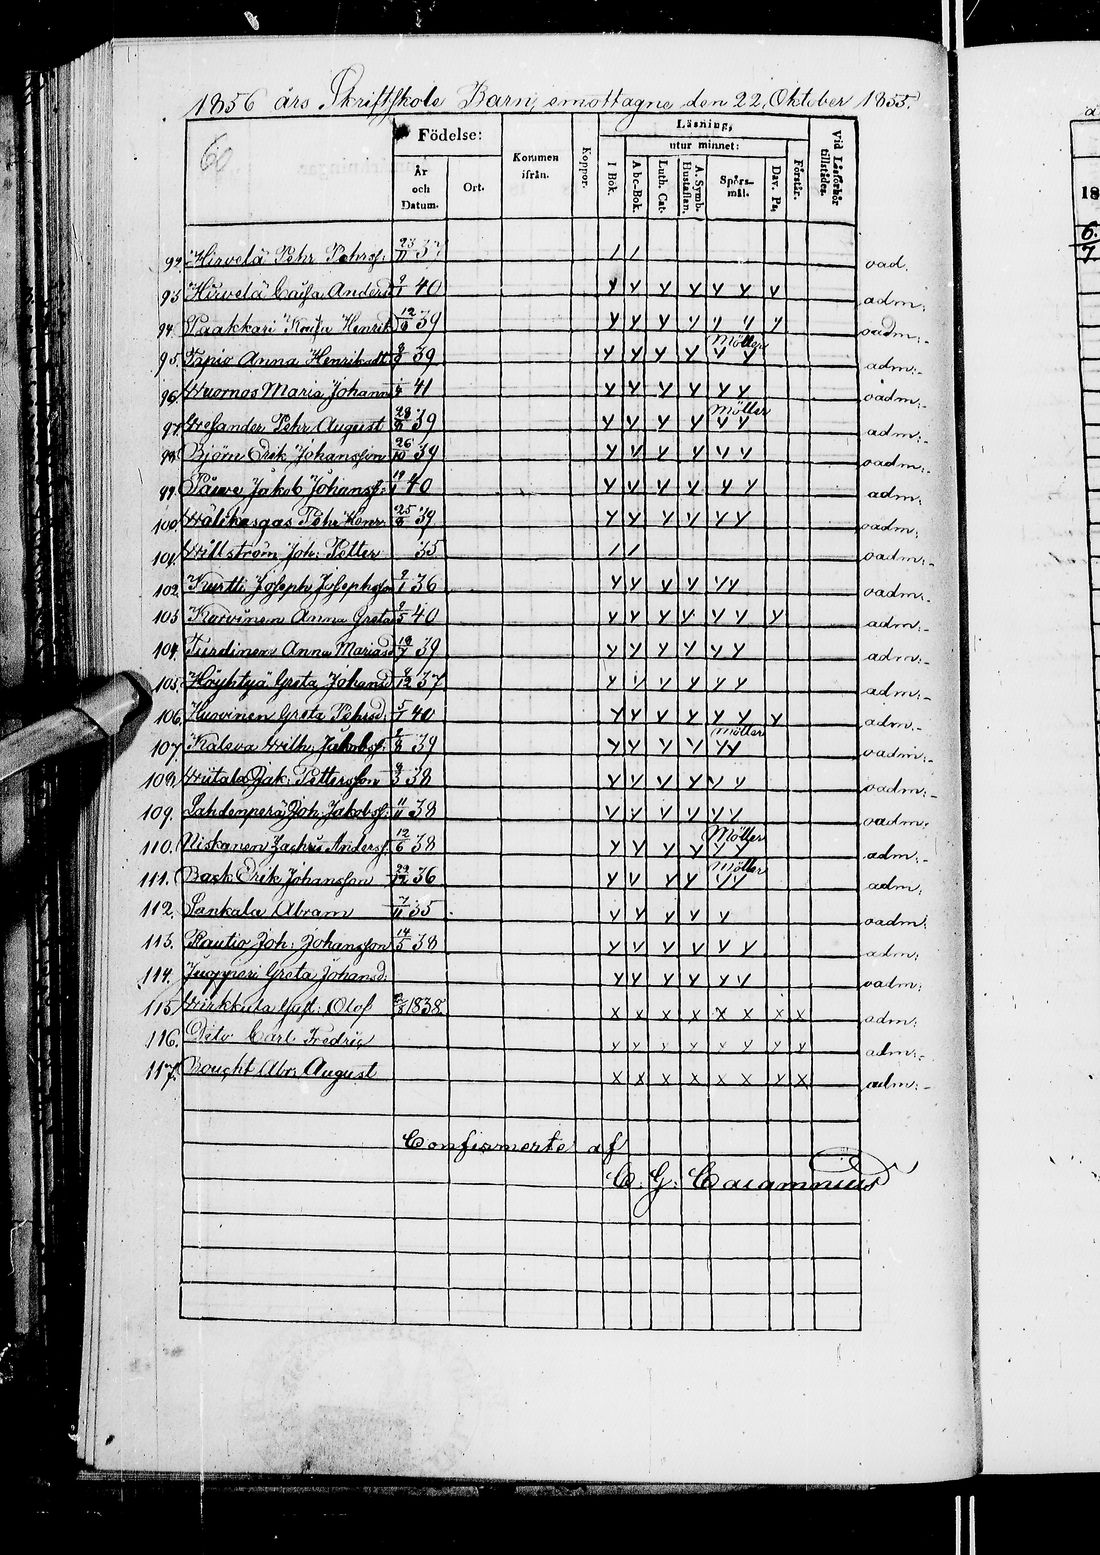 1856 års Skriftskole Barn, emottagne den 22, Oktober 1855.
60
Födelse: Läsning,
utur minnet:
År och Datum. Ort. Kommen ifrån. Koppor. I Bok. Abc-Bok. Luth. Cat. A. Symb. Hustaflan. Spörsmål. Dav. Ps. Förstår. Vid Läsförhör tillstädes.
18
92. Hirvelä Pehr Pehrss: 23/11 37 / / oad.
6.
93. Hirvelä Caisa Andersd 9/1 40 y y y y y y y adm:
7
94. Paakkari Kaisa Henriksd 12/ 39 y y y y y y y oadm:
95. Tapio Anna Henriksdt 39 y y y y Möller y y adm:-
96. Wuornos Maria Johann 41 y y y y y y oadm:-
97. Welander Pehr August 28/ 39 y y y y Möller y y adm:-
98. Björn Erik Johansson 26/10 39 y y y y y y oadm:-
99. Påwe Jakob Johanss: 40 y y y y y y adm:-
100. Wälikangas Pehr Henr. 25/ 39 y y y y y y oadm:
101. Willström Joh: Petter 35 / / oadm:-
102. Kurtti Joseph Josephsson 9/1 36 y y y y y y oadm:
103. Karvinen Anna Greta 9/5 40 y y y y y y y adm:-
104. Turdinen Anna Mariasd 19/7 39 y y y y y y adm:-
105. Höyhtyä Greta Johansd /12 37 y y y y y y adm:-
106. Hurvinen Greta Pehrsd. 5/1 40 y y y y y y y adm:-
107. Kaleva Wilh: Jakobss: /8 39 y y y y Möller y y oadm:-
108. Wiitala Jak: Pettersson 9/3 38 y y y y y y oadm:-
109. Lahdenperä Joh: Jakobss: 11/11 38 y y y y y y oadm:
110. Niskanen Zachris Anderss: 12/6 38 y y y y Möller y y adm:-
111. Back Erik Johansson /12 36 y y y y Möller y y adm:
112. Sankala Abram 7/11 35 y y y y y oadm:
113. Rautio Joh: Johansson 14/5 38 y y y y y y adm:
114. Juopperi Greta Johansd: y y y y y y oadm:
115. Wirkkula Gust: Olof 1838. x x x x x x x x adm:
116. Dito Carl Fredric y y y x x y y y adm:-
117. Bought Abr: August x x x x x x y x adm:-
Confirmerte af
C. G. Calamnius